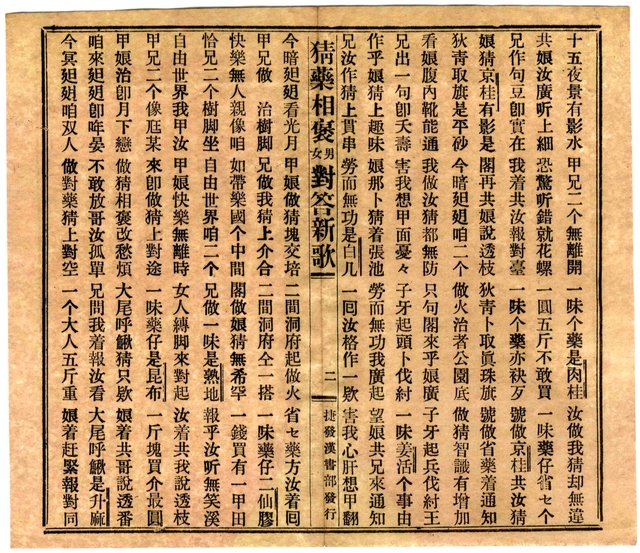 十五夜景有影水 甲兄二个無離開 一味个藥是肉桂 汝做我猜却無違
共娘汝廣听上細 恐驚听錯就花螺 一圓五斤不敢買 一味藥仔省七个
兄作句豆卽實在 我着共汝報對臺 一味个藥亦袂歹 號做京桂共汝猜
娘猜京桂有影是 閣再共娘說透枝 狄青卜取眞珠旗 號做省藥着通知
狄青取旗是平砂 今暗咱二个 做火治者公園底 做猜智識有增加
看娘腹內靴能通 我做汝猜都無防 只句閣來乎娘廣 子牙起兵伐紂王
兄出一句卽夭壽 害我想甲面憂々 子牙起頭卜伐紂 一味姜活个事由
作乎娘猜上趣味 娘那卜猜着張池 勞而無功我廣起 望娘共兄來通知
兄汝作猜上貫串 勞而無功是白几 一囘汝格作一欵 害我心肝想甲翻
猜藥相褒男女對答新歌 二 捷發漢書部發行
今暗看光月 甲娘做猜塊交培 二間洞府起做火 省七藥方汝着囘
甲兄做 治樹脚 兄做我猜上介合 二間洞府仝一搭 一味藥仔二仙膠
快樂無人親像咱 如帶樂國个中間 閣做娘猜無希罕 一錢買有一甲田
恰兄二个樹脚坐 自由世界咱二个 兄做一味是熟地 報乎汝听無笑溪
自由世界我甲汝 甲娘快樂無離時 女人縛脚來對起 汝着共我說透枝
甲兄二个像尫某 來卽做猜上對途 一味藥仔是昆布 一斤塊買介最圓
甲娘治卽月下戀 做猜相褒改愁煩 大尾呼鰍猜只欵 娘着共哥說透番
咱來卽年晏 不敢放哥汝孤單 兄問我着報汝看 大尾呼鰍是升麻
今冥咱双人 做對藥猜上對空 一个大人五斤重 娘着赶緊報對同